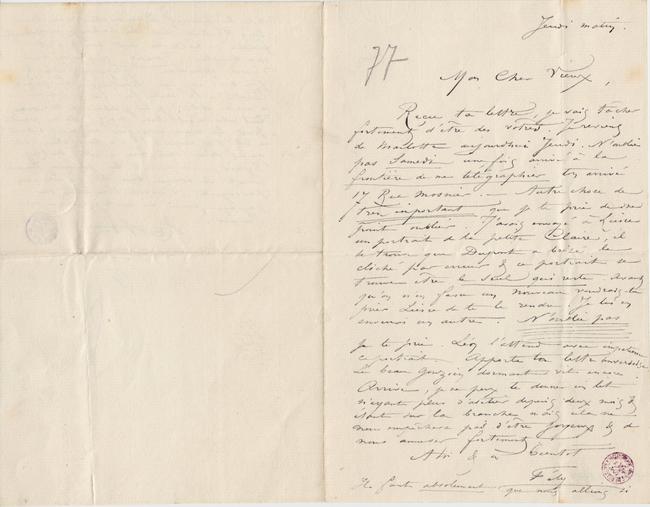 Jeudi matin.
77
Mon Cher Vieux,
Reçu ta lettre, je vais tacher
fortement d'être des votres. Je reviens
de Marlotte aujourd'hui Jeudi. N'oublie
pas Samedi une fois arrivé à la
frontière de me télégraphier ton arrivé
17 Rue Mosnier. — Autre chose de
très important que je te prie de ne
point oublier. J'avais envoyé à Liesse
un portrait de la petite Claire, il
se trouve que Dupont a brisé le
cliché par erreur & ce portrait se
trouve être le seul qui reste. Avant
qu'on n'en fasse un nouveau voudrais-tu
prier Liesse de te le rendre. Je lui en
enverrai un autre. N'oublie pas
je te prie. Léon l'attend avec impatience
ce portrait. Apporte ton lettre
Le beau dormant vit encore.
Arrive, je ne peux te donner un lit
n'ayant plus d'atelier depuis deux mois &
étant sur la branche, mais cela ne
nous empêchera pas d'être joyeux & de
nous amuser fortement
A toi & à bientot
Fély
Il faut absolument que nous allions